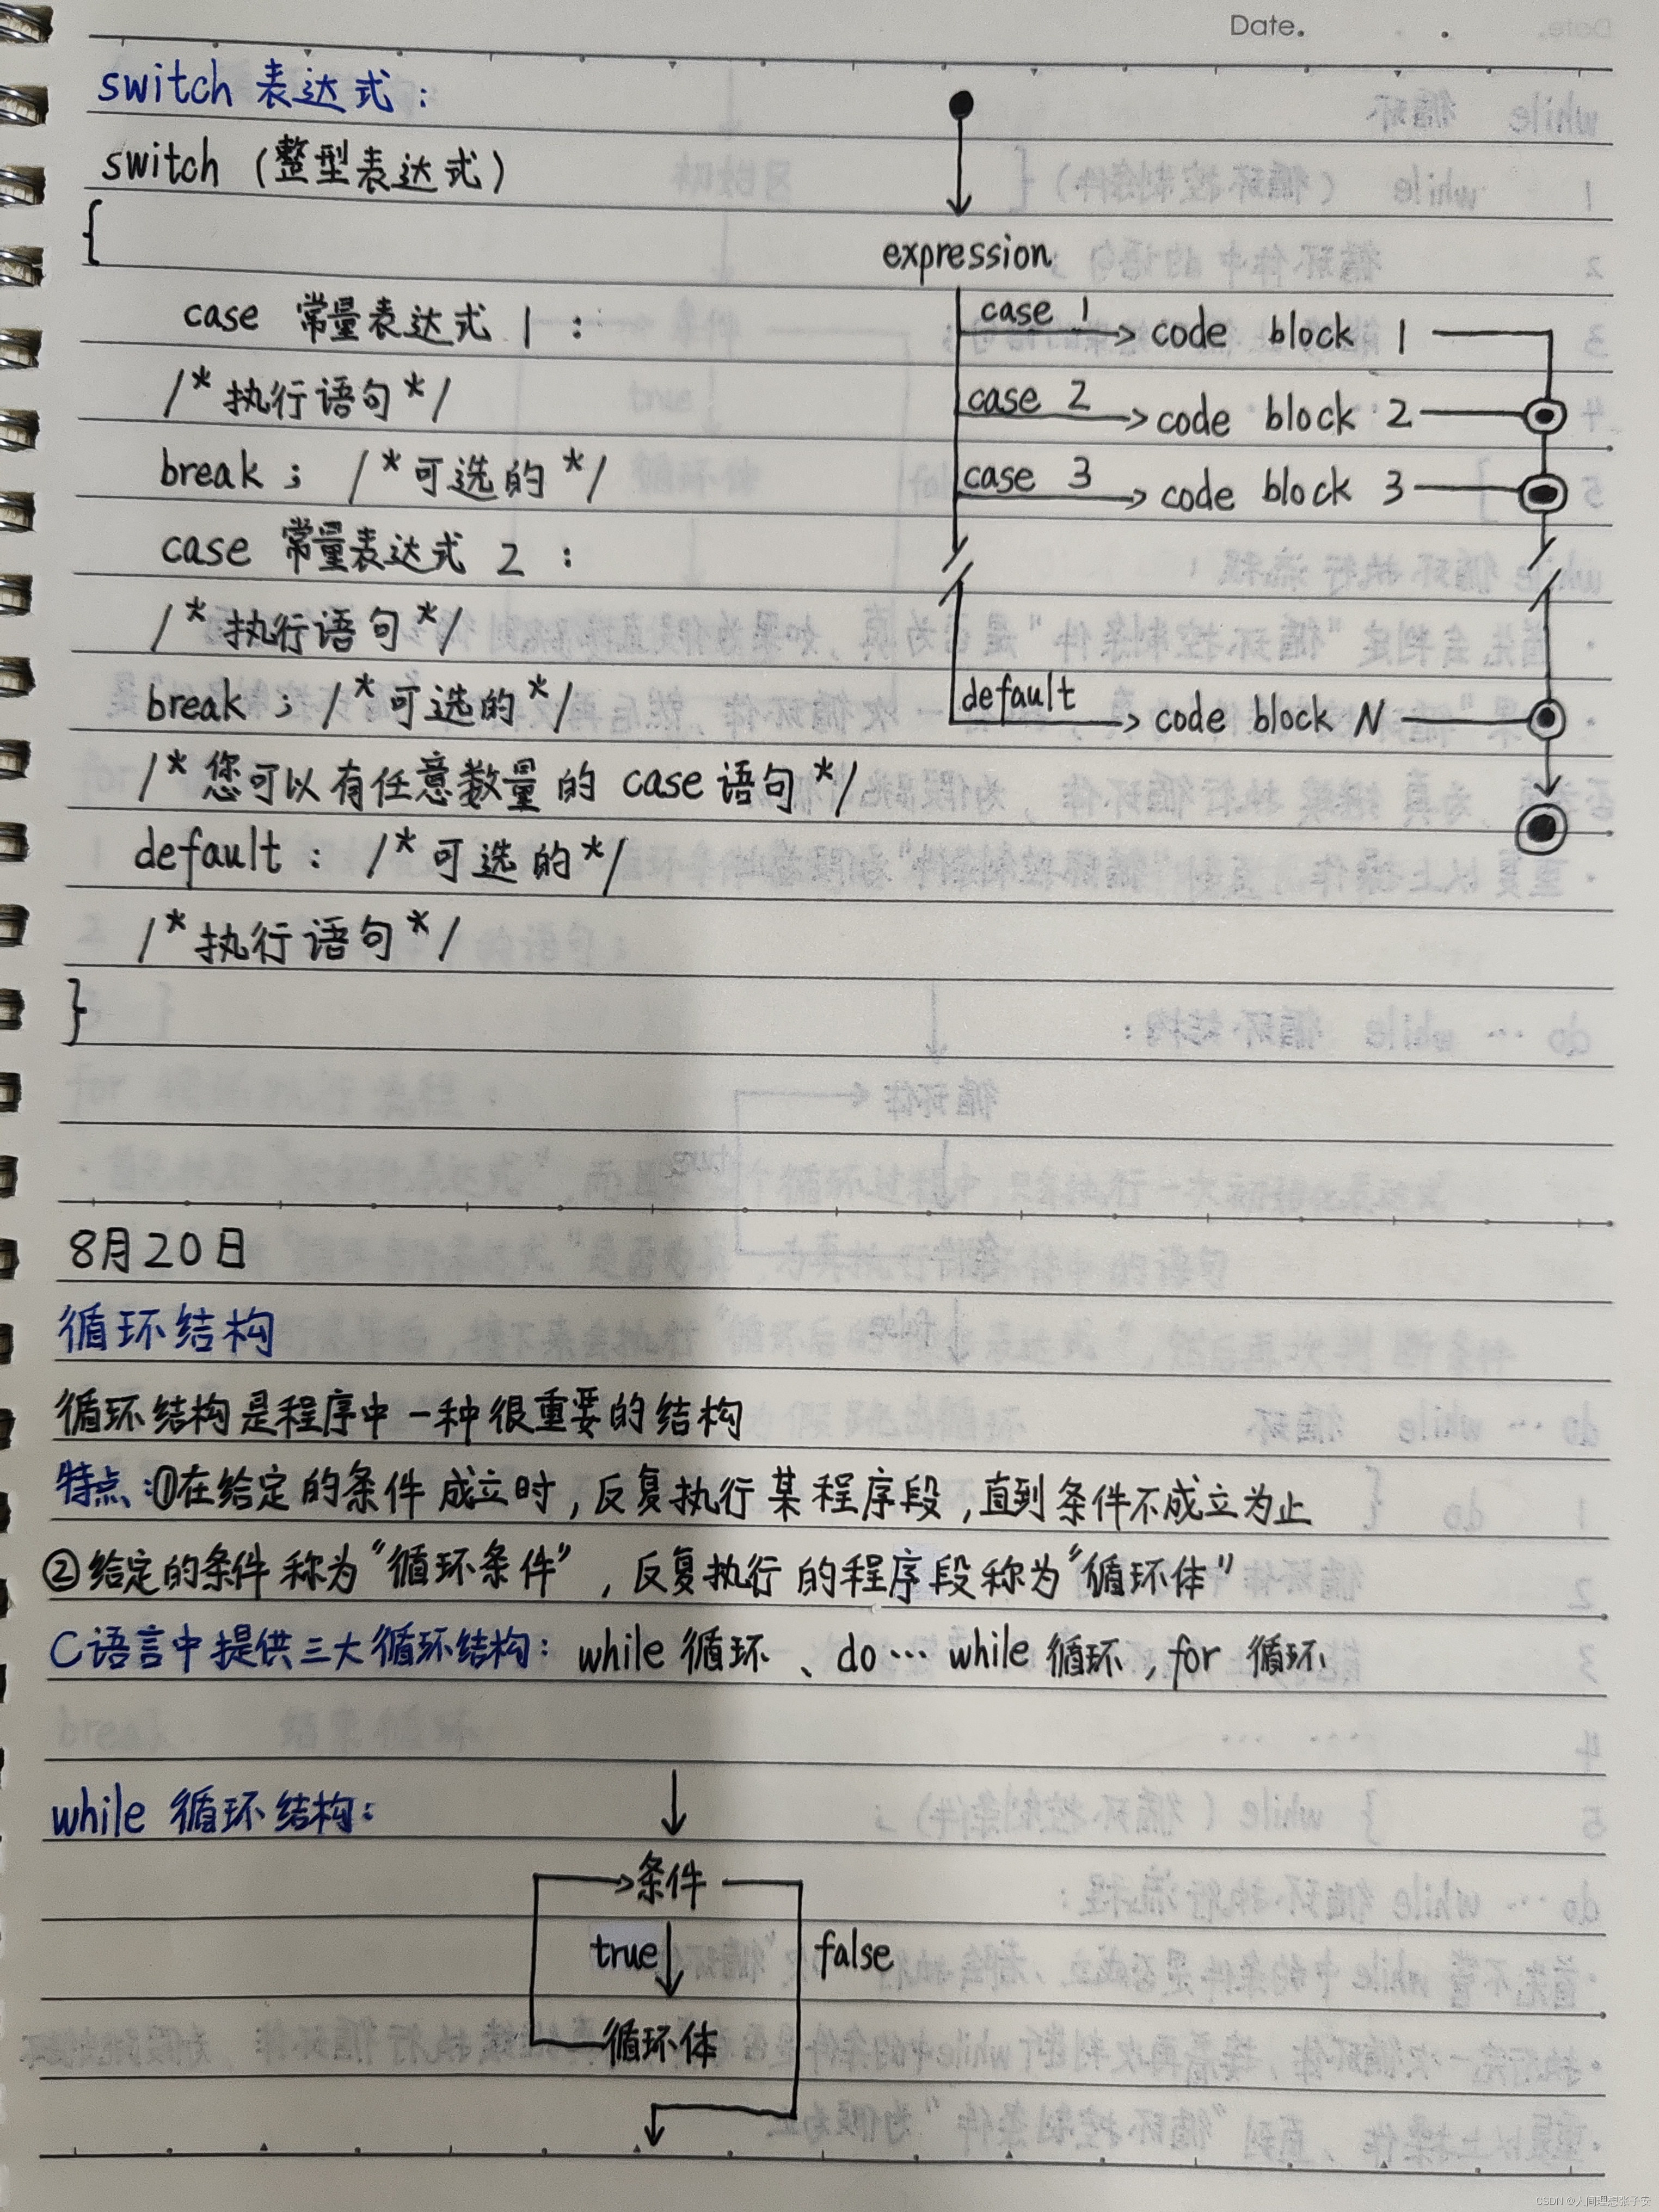 Date.
switch 表达式：
switch（整型表达式）
{
case 常量表达式 1：
/*执行语句*/
break； /*可选的*/
case 常量表达式 2：
/*执行语句*/
break； /*可选的*/
/*您可以有任意数量的 case 语句*/
default： /*可选的*/
/*执行语句*/
}
expression
case 1 code block 1
case 2 code block 2
case 3 code block 3
default code block N
8月20日
循环结构
循环结构是程序中一种很重要的结构
特点：①在给定的条件成立时，反复执行某程序段，直到条件不成立为止
②给定的条件称为“循环条件”，反复执行的程序段称为“循环体”
C语言中提供三大循环结构：while 循环、do…while 循环，for 循环
while 循环结构：
条件
true false
循环体
CSDN @人间理想张子安